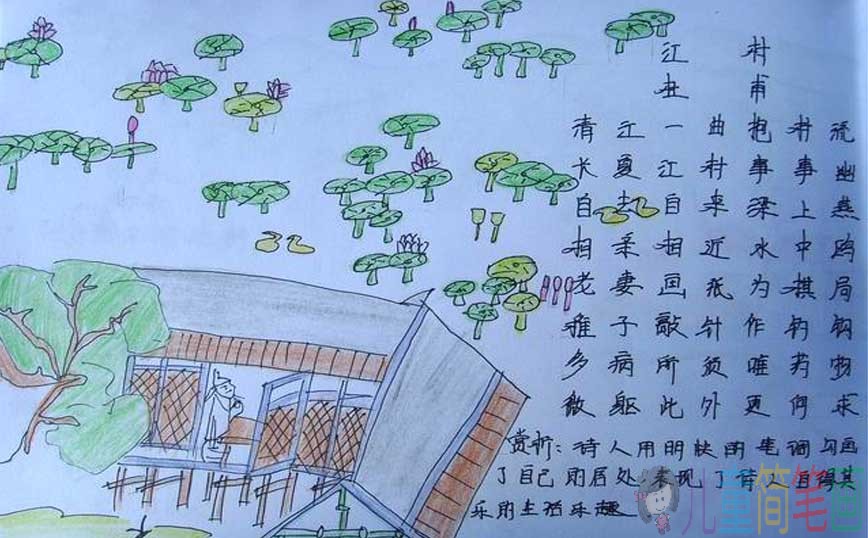 江村
杜甫
清江一曲抱村流
长夏江村事事幽
自去自来梁上燕
相柔相近水中鸥
老妻画纸为棋局
稚子敲针作钓钩
多病所须唯药物
微躯此外更何求
赏析：诗人用明快的笔调勾画
了自己的居处，表现了诗人自得其
乐的生活乐趣
儿童简笔画